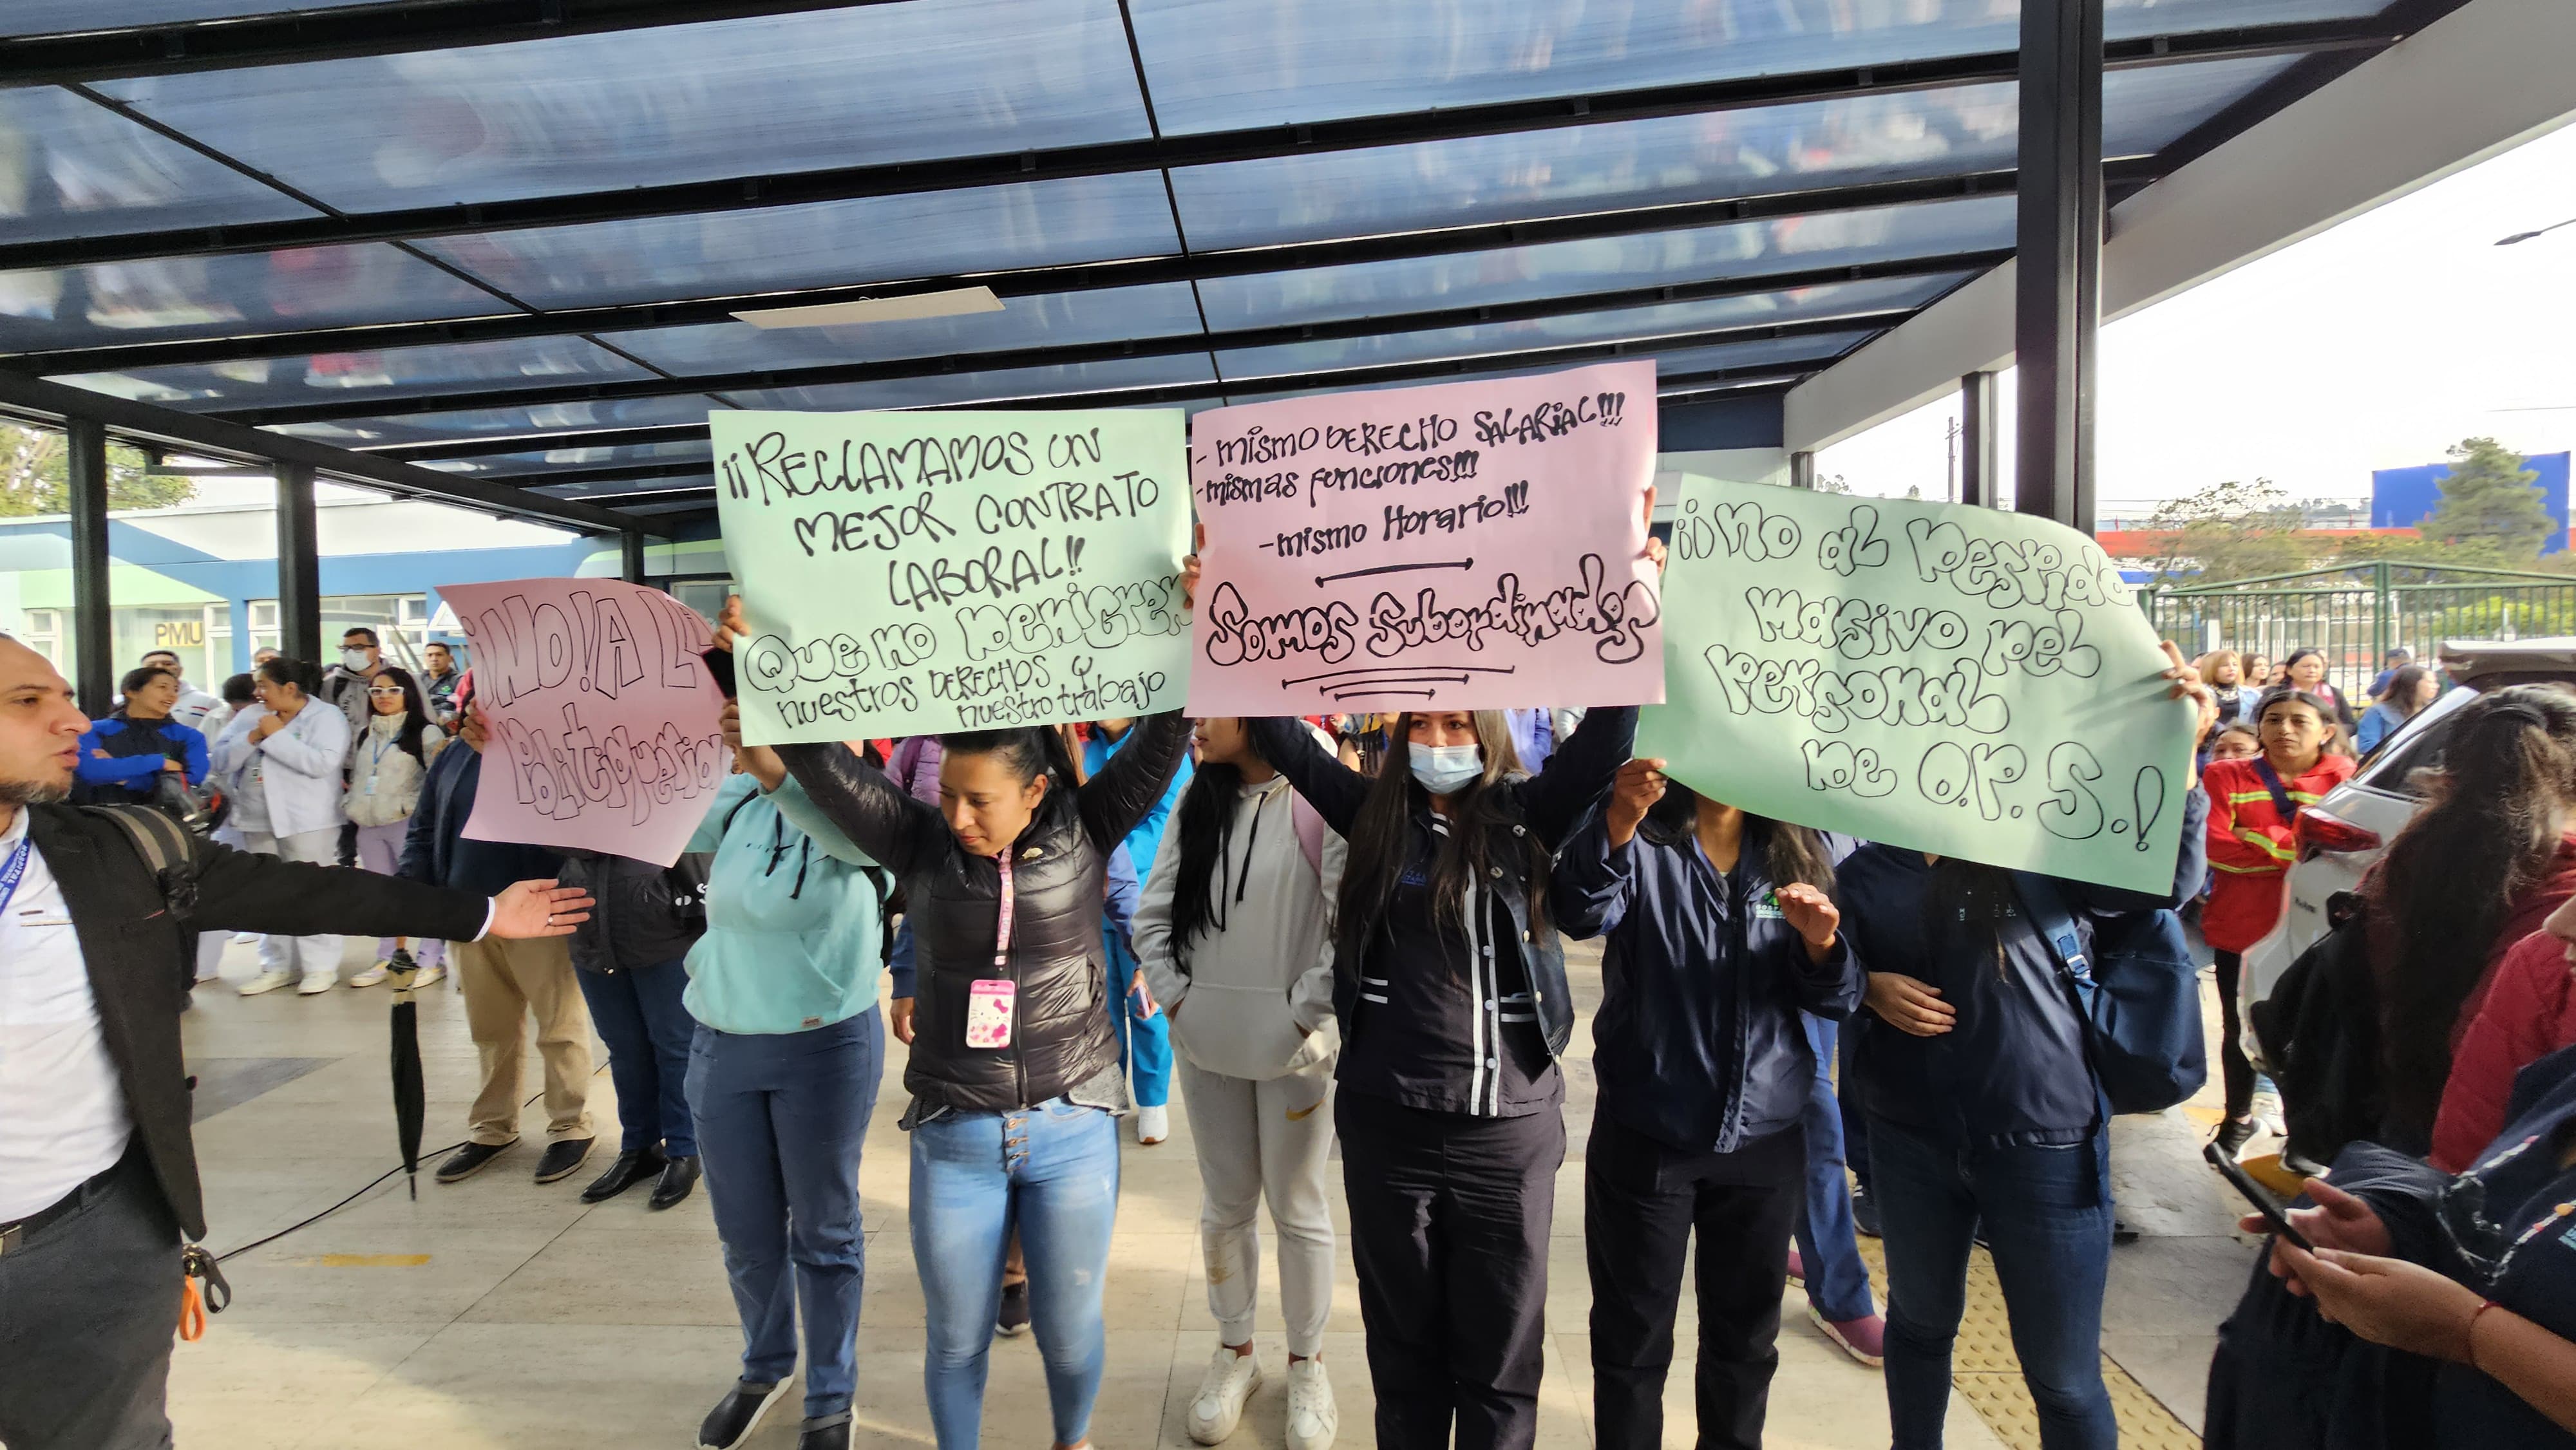 ¡NO! A LA
Politiqueria
¡¡RECLAMAMOS UN
MEJOR CONTRATO
LABORAL!!
Que no Denigren
nuestros DERECHOS y
nuestro trabajo
- mismo DERECHO SALARIAL!!!
- mismas funciones!!!
- mismo Horario!!!
Somos Subordinados
¡¡No al Despido
masivo Del
Personal
De O.P.S.!
PMU
HOSPITAL